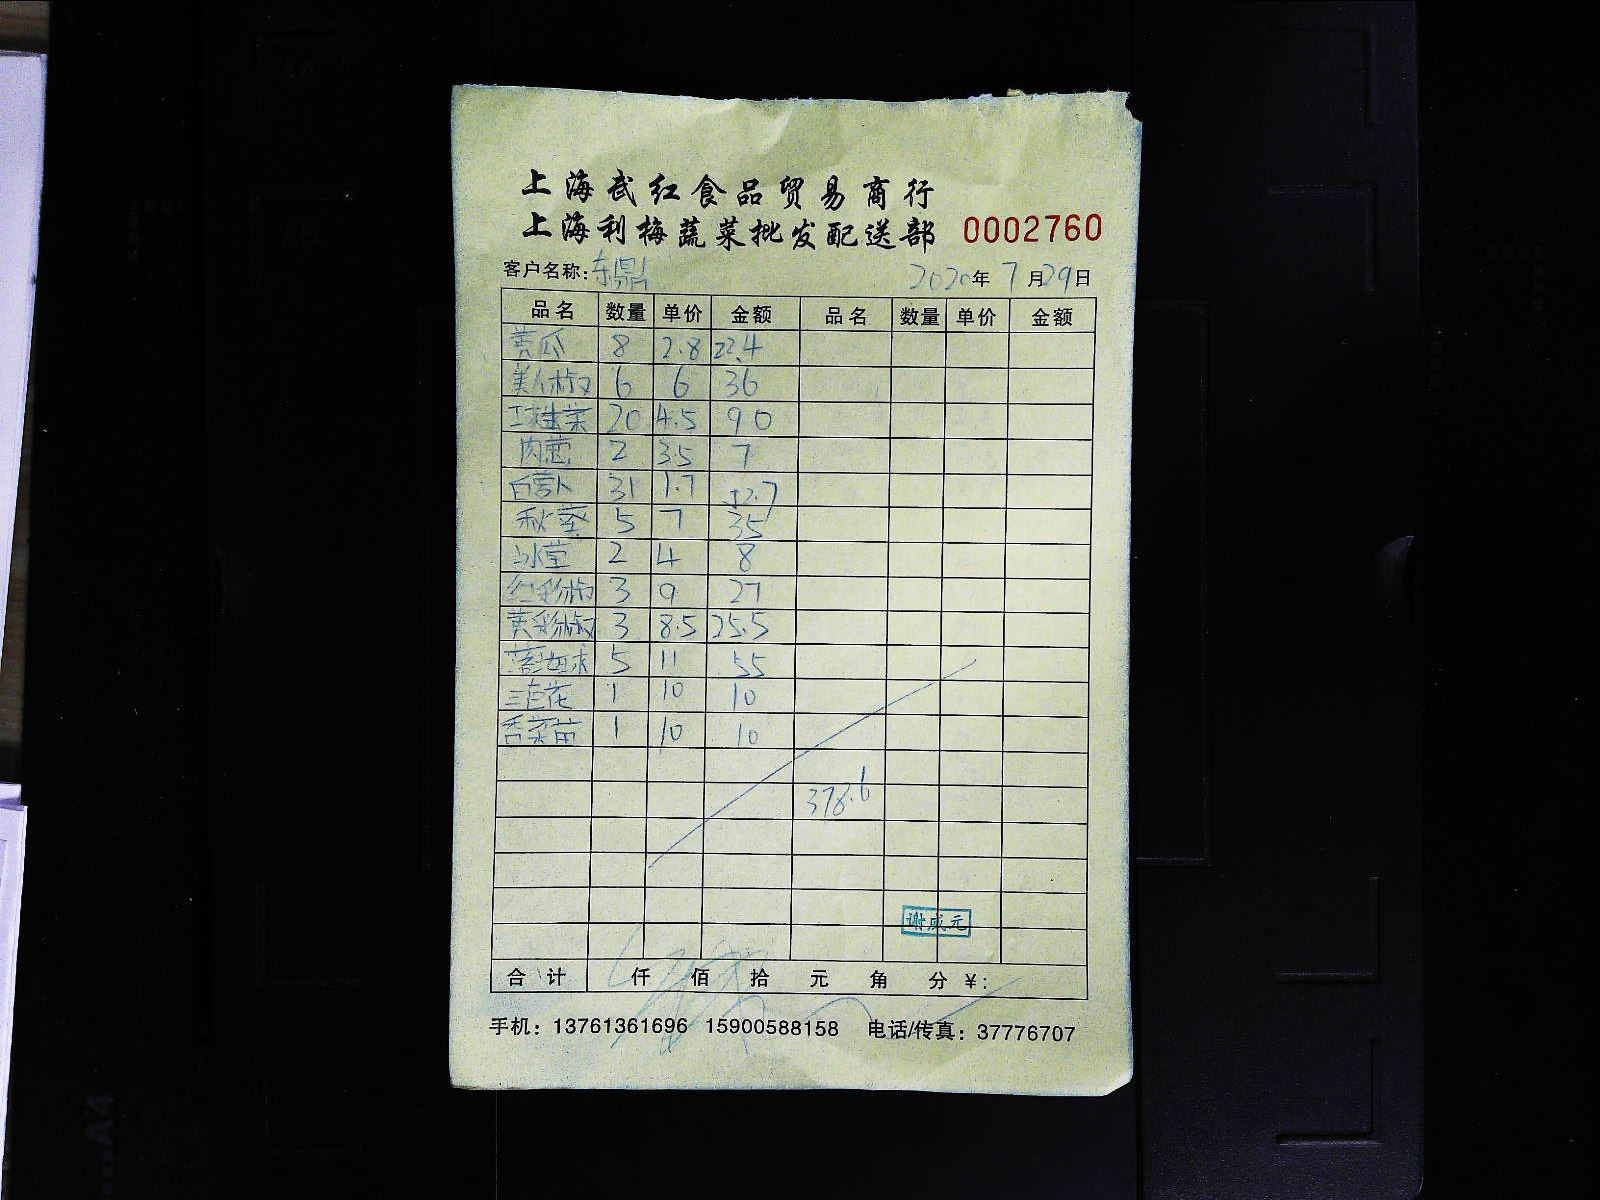 上海武红食品贸易商行
上海利梅蔬菜批发配送部 0002760
客户名称: 东鼎 2020年 7月29日
品名 数量 单价 金额 品名 数量 单价 金额
黄瓜 8 2.8 22.4
美人椒 6 6 36
球生菜 20 4.5 90
肉葱 2 3.5 7
白萝卜 31 1.7 52.7
秋葵 5 7 35
冰 2 4 8
红彩椒 3 9 27
黄彩椒 3 8.5 25.5
5 11 55
三色花 1 10 10
香菜苗 1 10 10
378.6
谢成元
合计 仟 佰 拾 元 角 分 ¥:
手机: 13761361696 15900588158 电话/传真: 37776707